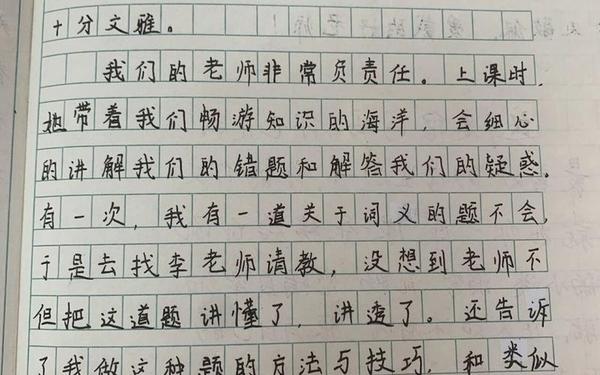 十分文雅。
我们的老师非常负责任。上课时,
她带着我们畅游知识的海洋，会细心
的讲解我们的错题和解答我们的疑惑.
有一次，我有一道关于词义的题不会,
于是去找李老师请教，没想到老师不
但把这道题讲懂了，讲透了。还告诉
了我做这种题的方法与技巧，和类似